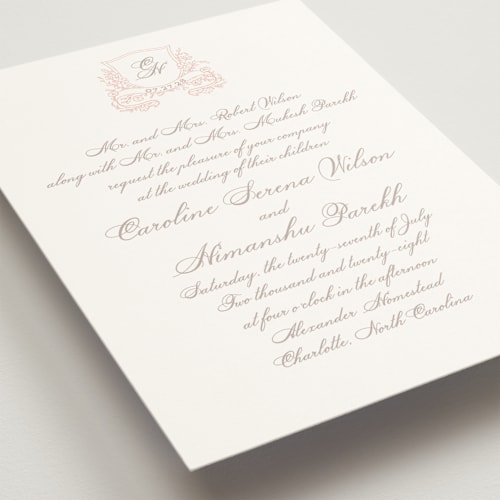 CH
07.27.28
Mr. and Mrs. Robert Wilson
along with Mr. and Mrs. Mukesh Parekh
request the pleasure of your company
at the wedding of their children
Caroline Serena Wilson
and
Himanshu Parekh
Saturday, the twenty-seventh of July
Two thousand and twenty-eight
at four o'clock in the afternoon
Alexander Homestead
Charlotte, North Carolina